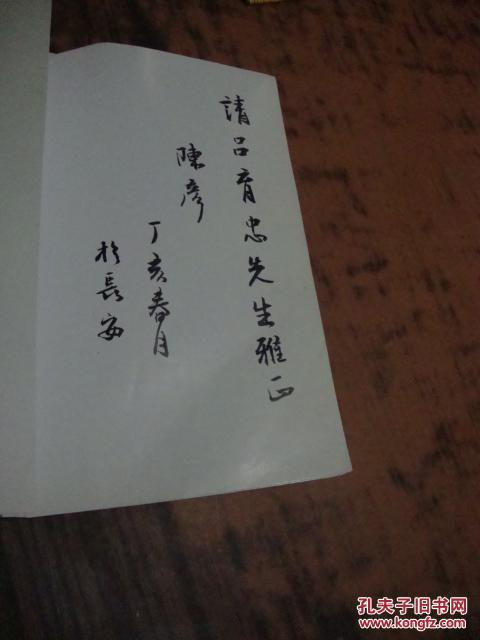 請吕育忠先生雅正
陳彦
丁亥春月
於長安
孔夫子旧书网
www.kongfz.com